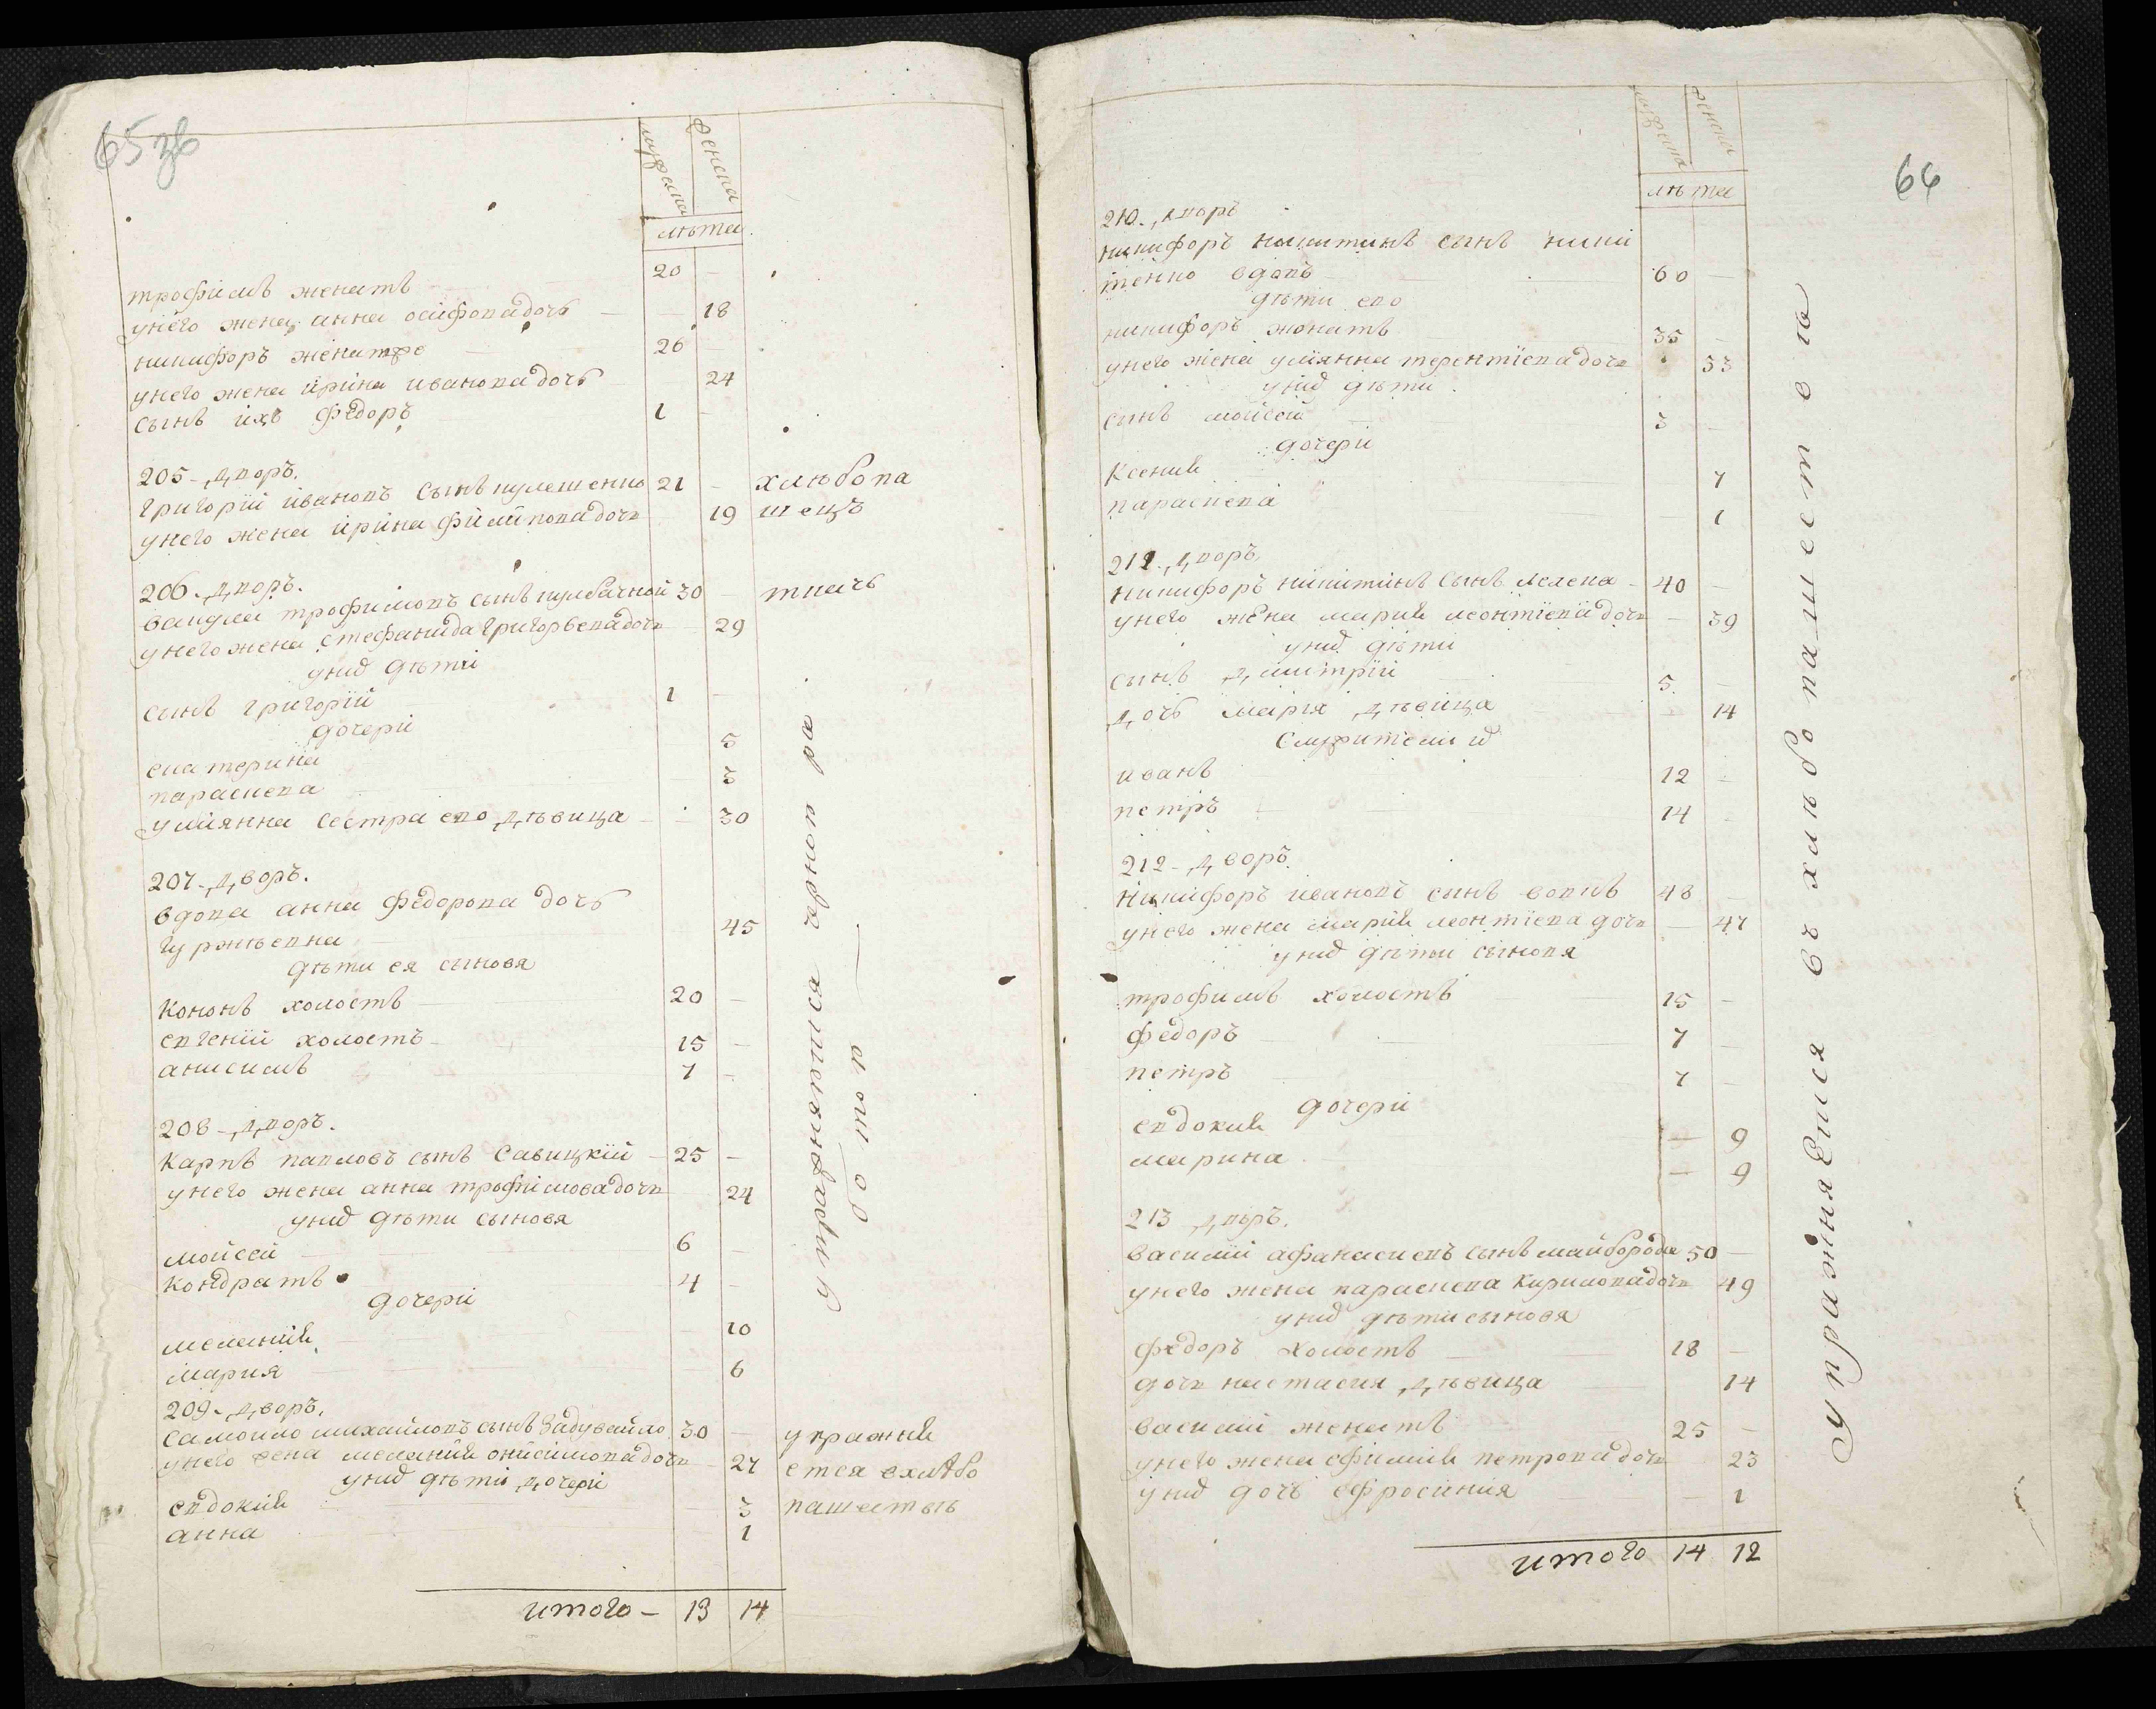 65 зв
мужеска
женска
лѣта
трофимъ женатъ 20 –
унего жена анна осифова дочь – 18
никифоръ женатже 26 –
унего жена ирина иванова дочь 24
сынъ ихъ федоръ 1 –
205 – дворъ.
григорій ивановъ сынъ кулешенко 21 – хлѣбопа
унего жена ирина филипова дочь 19 шецъ
206 – дворъ.
вакула трофимовъ сынъ кулбачной 30 ткачь
унего жена стефанида григорьева дочь 29
унид дѣти
сынъ григорій 1 –
дочери
екатерина 5
параскева 3
улиянна сестра ево дѣвица – 30
207 – дворъ.
вдова анна федорова дочь
гуржѣевна 45
дѣти ея сыновя
кононъ холостъ 20 –
евгений холостъ 15 –
анисимъ 7 –
208 – дворъ.
карпъ павловъ сынъ савицкій – 25 –
унего жена анна трофимова дочь 24
унид дѣти сыновя
мойсей 6 –
кондратъ 4 –
дочери
мелания 10
мария 6
упражняются черною ра
ботою
209 – дворъ.
самойло михайловъ сынъ задувайло 30 – упражня
унего жена мелания онисимова дочь 27 ется вхлѣбо
унид дѣти дочери
евдокия 3 пашествѣ
анна 1
итого – 13 14
66
мужеска
женска
лѣта
210 – дворъ
никифоръ никитинъ сынъ ники
тенко вдовъ 60 –
дѣти ево
никифоръ женатъ 35 –
унего жена улиянна терентіева дочь 33
унид дѣти
сынъ мойсей 3 –
дочери
ксения 7
параскева – 1
211 – дворъ
никифоръ никитинъ сынъ – 40 –
унего жена мария леонтіева дочь – 39
унид дѣти
сынъ димитрій 5
дочь марія дѣвица – 14
служители ид
иванъ 12 –
петръ 14 –
212 – дворъ
никифоръ ивановъ сынъ вовкъ 48 –
унего жена мария леонтіева дочь – 47
унид дѣти сыновя
трофимъ холостъ 15 –
федоръ 7 –
петръ 7 –
дочери
евдокия – 9
марина – 9
213 дворъ.
василій афанасиевъ сынъ майборода 50 –
унего жена параскева кирилова дочь 49
унид дѣти сыновя
федоръ холостъ 18 –
дочь настасия дѣвица 14
василій женатъ 25 –
унего жена ефимия петрова дочь 23
унид дочь ефросиния – 1
упражняются въ хлѣбопашество
итого 14 12